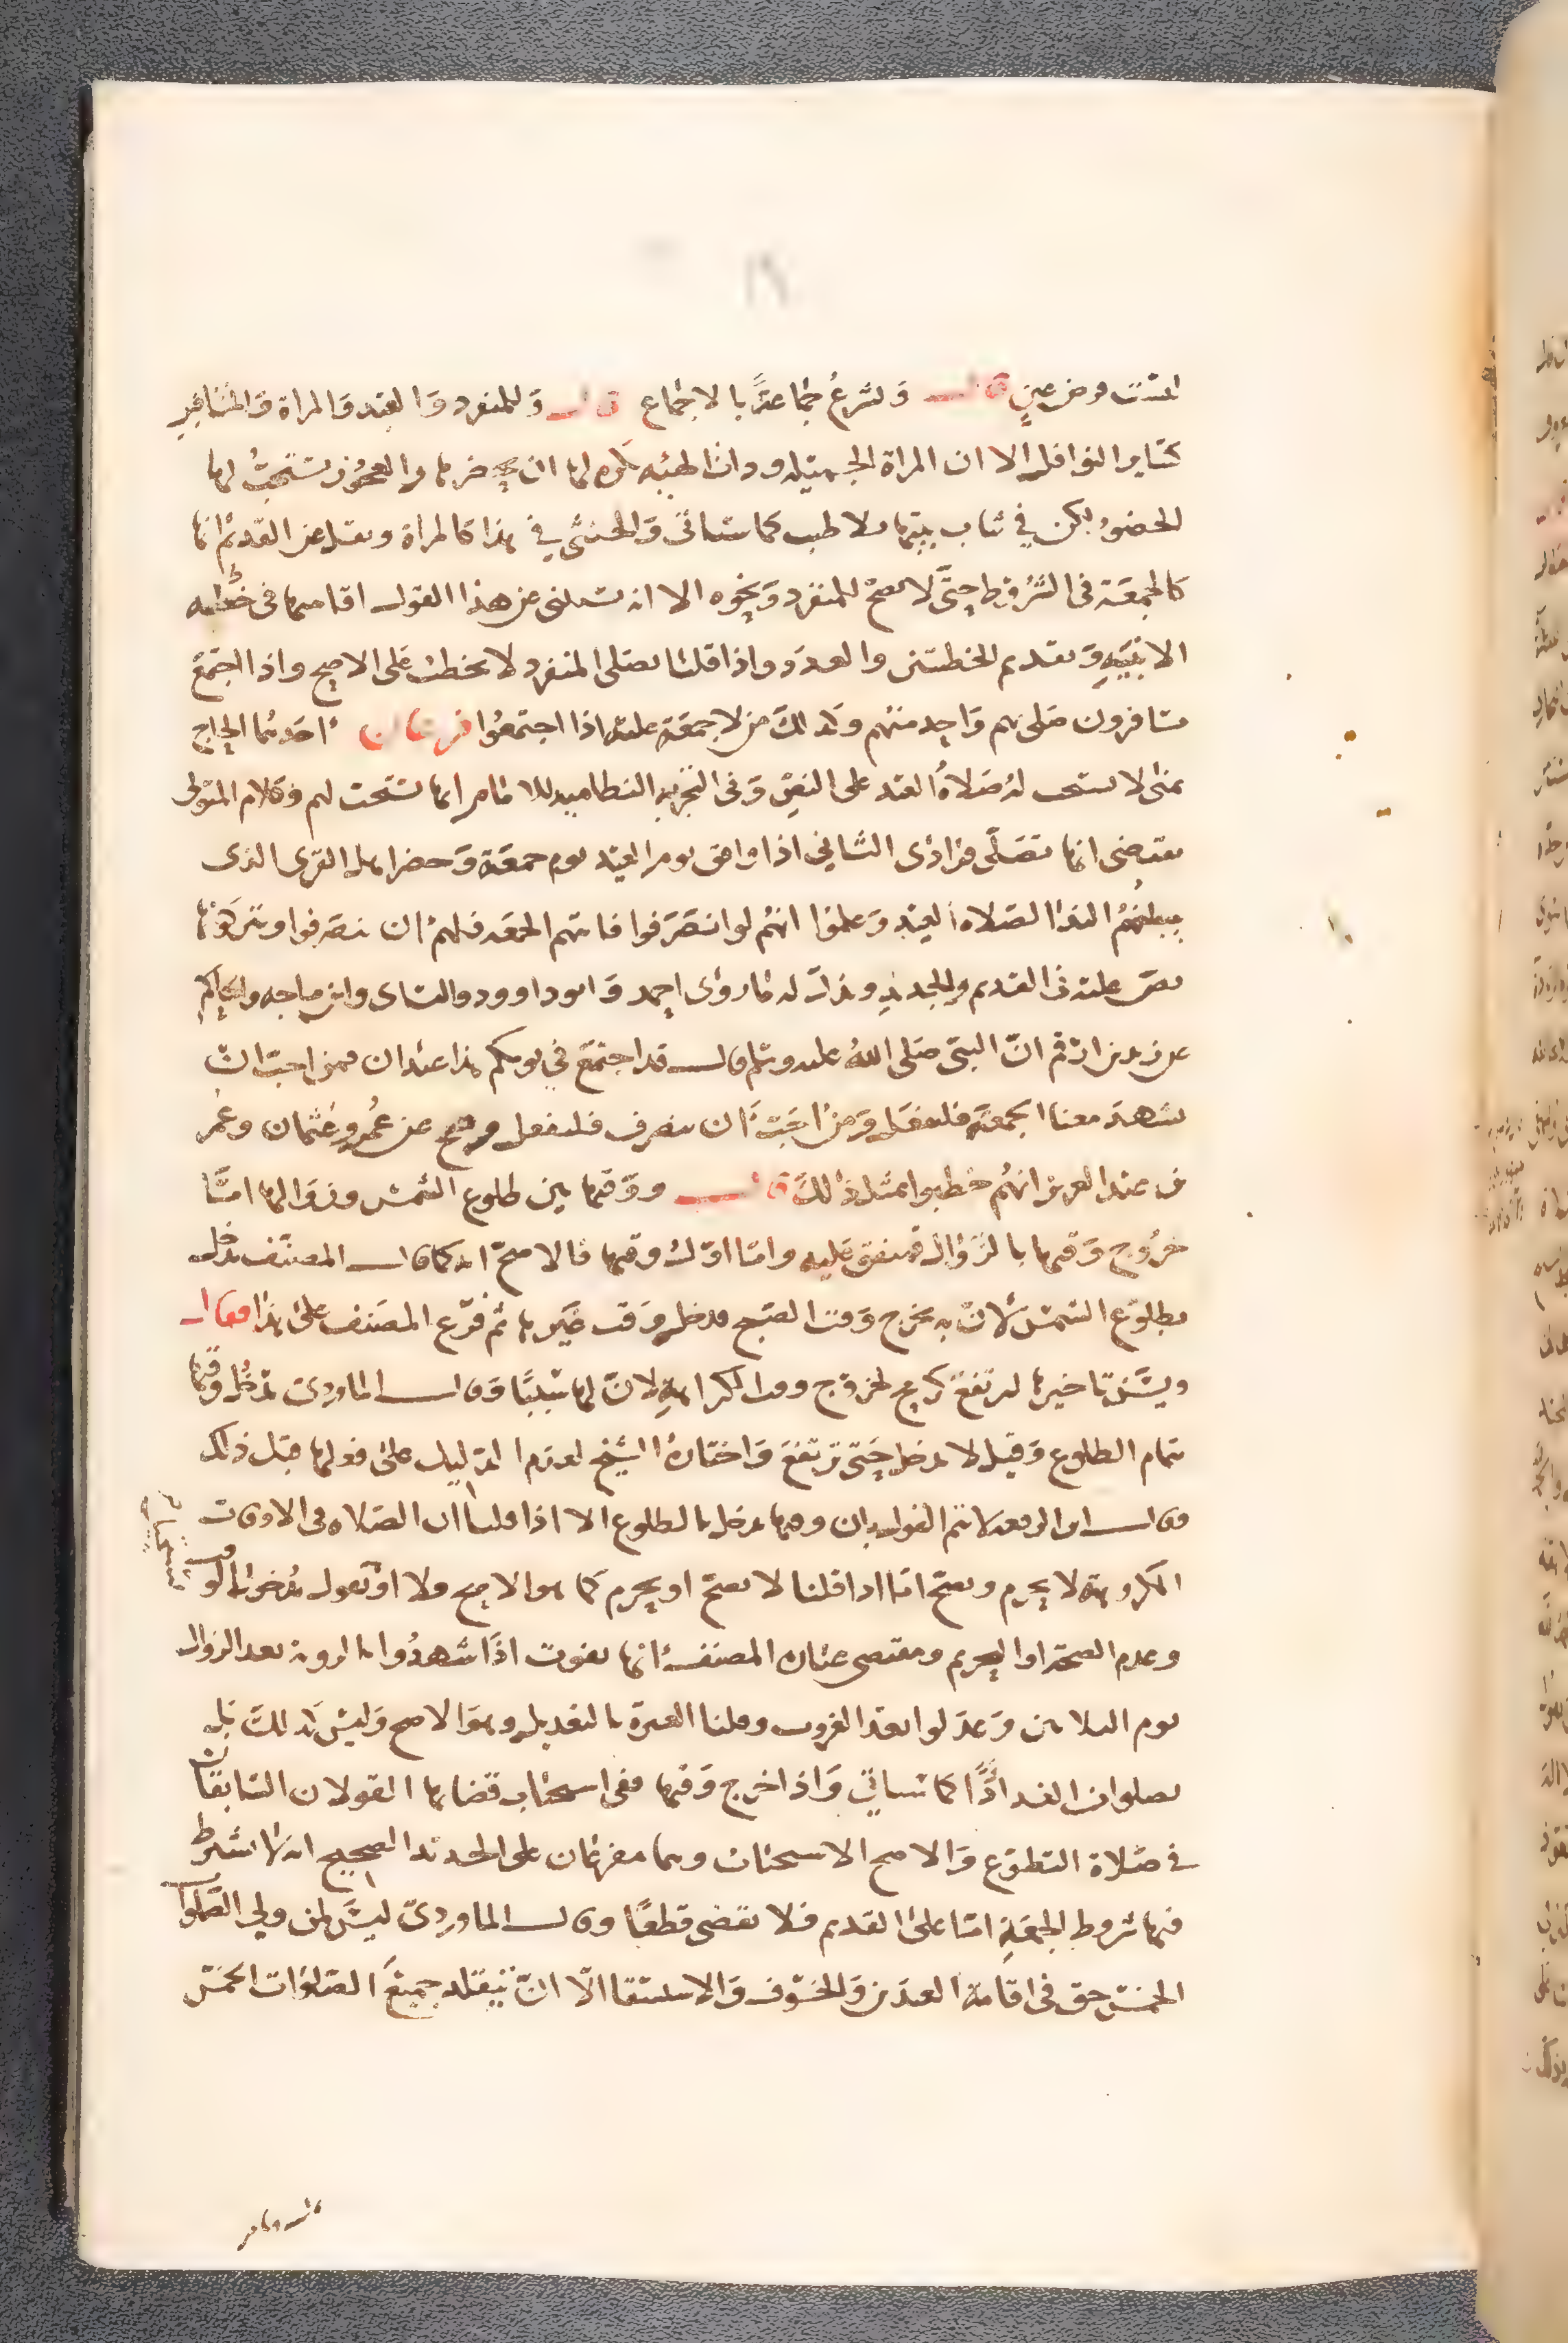 ليست فرض عين قال وتشرع جماعة بالاجماع قال وللمنفرد والعبد والمراة والمسافر
كساير النوافل الا ان المراة الجميلة وذات الهيئه يكره لها ان يحضرها والعجوز يستحب لها
الحضور لكن في ثياب بيتها بلا طيب كما سياتى والخنثى في هذا كالمراة ونقل عن القديم انها
كالجمعة فى الشروط حتى لا تصح للمنفرد ونحوه الا انه يستثنى عن هذا القول اقامتها فى خطه
الابنية وتقديم الخطبتين والعدد واذا قلنا يصلى المنفرد لا يخطب على الاصح واذا اجتمع
مسافرون صلى بهم واحد منهم وكذلك من لا جمعة عليه اذا اجتمعوا فرعان احدهما الحاج
بمنى لا يستحب له صلاة العيد على النص وفى النظاميه للامام انها تستحب لهم وكلام المتولى
يقتضى انها تصلى فرادى الثاني اذا وافق يوم العيد يوم جمعة وحضر اهل القرى الذى
يبلغهم الندا لصلاة العيد وعلموا انهم لو انصرفوا فاتتهم الجمعه فلهم ان ينصرفوا ويتركونها
نص عليه فى القديم والجديد ويدل له ما روى احمد وابو داوود والنساى وابن ماجه والحاكم
عن زيد بن ارقم انّ النبى صلى الله عليه وسلم قال قد اجتمع في يومكم هذا عيدان فمن احب ان
يشهد معنا الجمعة فليفعل ومن احبّ ان ينصرف فليفعل وصح عن عمر وعثمان وعمر
بن عبد العزيز انهم خطبوا بمثل ذلك قال ووقتها بين طلوع الشمس وزوالها امّا
خروج وقتها بالزوال فمتفق عليه وامّا اوّل وقتها فالاصحّ انه كما قال المصنف يدخل
بطلوع الشمس لانّ به يخرج وقت الصبح فدخل وقت غيرها ثم فرّع المصنف على هذا فقال
ويسنّ تاخيرها لترتفع كرمح لخروج وقت الكراهة لانّ لها سببًا وقال الماوردى يدخل وقتها
بتمام الطلوع وقيل لا يدخل حتى ترتفع واختاره الشيخ لعدم الدليل على فعلها قبل ذلك
وقال ابن الرفعه لا يتم القول بان وقتها يدخل بالطلوع الا اذا قلنا ان الصلاه فى الاوقات
المكروهة لا يحرم وتصح امّا اذا قلنا لا تصحّ او يحرم كما هو الاصح فلا او نقول بدخول الوقت
وعدم الصحة او التحريم ومقتضى عبارة المصنف انها تفوت اذا شهدوا بالرويه بعد الزوال
يوم الثلاثين وعدلوا بعد الغروب وقلنا العبرة بالتعديل وهو الاصح وليس كذلك بل
يصلوا من الغد اداً كما سياتي واذا خرج وقتها ففى استحباب قضايها القولان السابقان
في صلاة التطوع والاصح الاستحباب وهما مفرعان على الجديد الصحيح انه لا يشترط
فيها شروط الجمعة امّا على القديم فلا تقضى قطعًا وقال الماوردىّ ليس لمن ولي الصلوات
الخمس حق فى اقامة العيدين والخسوف والاستسقا الّا انّ يقلد جميع الصلوات الخمس